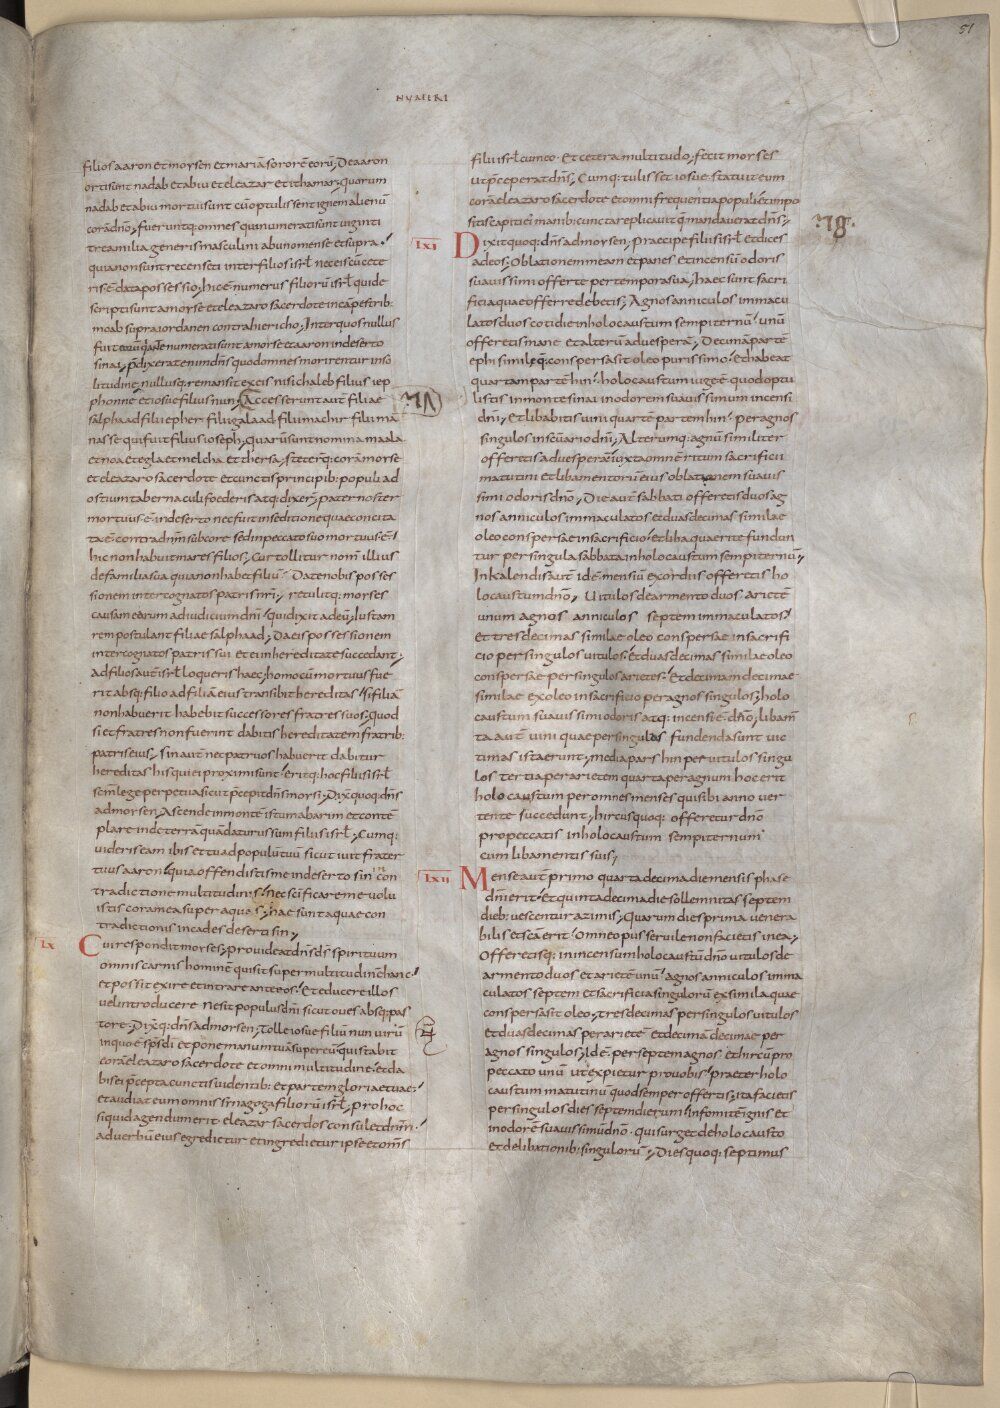 51
NUMERI
filios aaron et moysen et mariā sororē eorū; De aaron
orti sunt nadab et abiu et eleazar et ithamar; quorum
nadab et abiu mortui sunt cū optulissent ignem alienū
corā dn̄o; fueruntq: omnes qui numerati sunt viginti
tria milia generis masculini ab uno mense et supra;
quia non sunt recensiti inter filios isrł nec eis cū cete
ris ē data possessio; hic ē numerus filiorū isrł qui de
scripti sunt a moyse et eleazaro sacerdote in cāpestrib:
moab supra iordanen contra hiericho; Inter quos nullus
fuit eorū qui ante numerati sunt a moyse et aaron in deserto
sinai; p̄dixerat enim dn̄s quod omnes morirentur in so
litudine; nullusq: remansit ex eis nisi chaleb filius iep
phonne et iosue filius nun; Accesserunt aut̄ filiae
salphaad filii epher filii galaad filii machir filii ma
nasse qui fuit filius ioseph; quarū sunt nomina maala
et noa et egla et melcha et thersa; steterq: corā moyse
et eleazaro sacerdote et cunctis principib: populi ad
ostium tabernaculi foederis atq: dixer̄; pater noster
mortuus ē in deserto nec fuit in seditione quae concita
ta ē contra dn̄m sub core sed in peccato suo mortuus ē;
hic non habuit mares filios; Cur tollitur nom̄ illius
de familia sua quia non habet filiū; Date nobis posses
sionem inter cognatos patris n̄ri; retulitq: moyses
causam earum ad iudicium dn̄i; qui dixit ad eū; Iustam
rem postulant filiae salphaad; Da eis possessionem
inter cognatos patris sui et ei in hereditate succedant;
Ad filios aut̄ isrł loqueris haec; homo cū mortuus fue
rit absq: filio ad filiā eius transibit hereditas; si filiā
non habuerit habebit successores fratres suos; quod
si et fratres non fuerint dabitis hereditatem fratrib:
patris eius; sin aut̄ nec patruos habuerit dabitur
hereditas his qui ei proximi sunt; eritq: hoc filiis isrł
sc̄m lege perpetua sicut p̄cepit dn̄s moysi; Dix̄ quoq: dn̄s
ad moysen; Ascende in montē istum abarim et contē
plare inde terrā quā daturus sum filiis isrł; Cumq:
uideris eam ibis et tu ad populū tuū sicut iuit frater
tuus aaron; quia offendistis me in deserto sin in con
tradictione multitudinis; nec scificare me volu
istis coram ea super aquas; hae sunt aquae con
tradictionis in cades deserti sin;
LX
Cui respondit moyses; prouideat dn̄s ds̄ spirituum
omnis carnis hominē qui sit super multitudinē hanc;
et possit exire et intrare ante eos; Et educere illos
vel introducere ne sit populus dn̄i sicut oues absq: pas
tore; Dix̄q: dn̄s ad moysen; Tolle iosue filiū nun virū
in quo ē sps̄ di et pone manum tuā super eū; qui stabit
corā eleazaro sacerdote et omni multitudine; et da
bis ei p̄cepta cunctis uidentib: et partem gloriae tuae;
et audiat eum omnis synagoga filiorū isrł; pro hoc
siquid agendum erit eleazar sacerdos consulet dn̄m;
ad verbū eius egredietur et ingredietur ipse et om̄s
filii isrł cum eo; Et cetera multitudo; fecit moyses
ut p̄ceperat dn̄s; Cumq: tulisset iosue statuit eum
corā eleazaro sacerdote et omni frequentia populi et impo
sitis capiti ei manib: cuncta replicauit q̄ mandauerat dn̄s;
LXI
Dixit quoq: dn̄s ad moysen; Praecipe filiis isrł et dices
ad eos; Oblationem meam et panes et incensū odoris
suauissimi offerte per tempora sua; haec sunt sacri
ficia quae offerre debetis; Agnos anniculos immacu
latos duos cotidie in holocaustum sempiternū; unū
offeretis mane et alterū ad uesperā; Decimā partē
ephi similae q̄ conspersa sit oleo purissimo; et habeat
quartam partē hin; holocaustum iuge ē quod optu
listis in monte sinai in odorem suauissimum incensi
dn̄i; Et libabitis uini quartē partem hin; per agnos
singulos in sc̄uario dn̄i; Alterumq: agnū similiter
offeretis ad uesperā iuxta omnē ritum sacrificii
matutini et libamentorū eius oblationem suauis
simi odoris dn̄o; Die aut̄ sabbati offeretis duos ag
nos anniculos immaculatos et duas decimas similae
oleo conspersae in sacrificio; et liba quae rite fundun
tur per singula sabbata in holocaustum sempiternū;
In kalendis aut̄ id ē mensiū exordiis offeretis ho
locaustum dn̄o; Uitulos de armento duos arietē
unum agnos anniculos septem immaculatos;
et tres decimas similae oleo conspersae in sacrifi
cio per singulos uitulos; et duas decimas similae oleo
conspersae per singulos arietes; Et decimam decimae
similae ex oleo in sacrificio per agnos singulos; holo
caustum suauissimi odoris atq: incensi ē dn̄o; libam̄
ta aut̄ uini quae per singulos fundenda sunt uic
timas ista erunt; media pars hin per uitulos singu
los tertia per arietem quarta per agnum hoc erit
holocaustum per omnes menses qui sibi anno uer
tente succedunt; hircus quoq: offeretur dn̄o
pro peccatis in holocaustum sempiternum
cum libamentis suis;
LXII
Mense aut̄ primo quarta decima die mensis phase
dn̄i erit; Et quinta decima die sollemnitas septem
dieb: uescentur azimis; Quarum dies prima venera
bilis et sc̄a erit; Omne opus seruile non facietis in ea;
Offeretisq: in incensum holocaustū dn̄o uitulos de
armento duos et arietē unū; agnos anniculos imma
culatos septem et sacrificia singulorū ex simila quae
conspersa sit oleo; tres decimas per singulos vitulos
et duas decimas per arietē et decimā decimae per
agnos singulos; Id ē per septem agnos et hircū pro
peccato unū ut expietur pro vobis; praeter holo
caustum matutinū quod semper offertis; ita facietis
per singulos dies septem dierum; in fomitē ignis et
in odorē suauissimū dn̄o; qui surget de holocausto
et de libationib: singulorū; Dies quoq: septimus